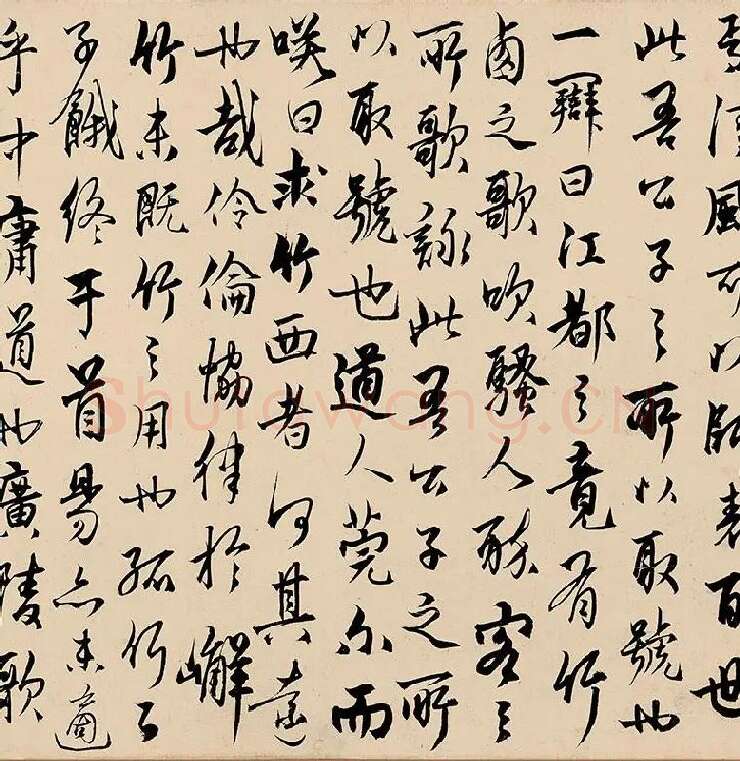 清風可以師表百世
此吾公子之所以取號也
一辯曰江都之竟有竹
鹵之歌吹騷人醉客之
所歌詠此吾公子之所
以取號也道人莞尔而
咲曰求竹西者何其遠
也哉伶倫協律於嶰
竹未既竹之用也孤竹之
子餓終于首昜亦未適
乎中庸道也廣陵歌
Shufawang.CN